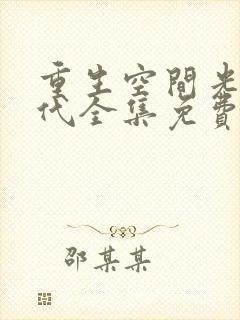 重生空間光
代全集免費
邵某某